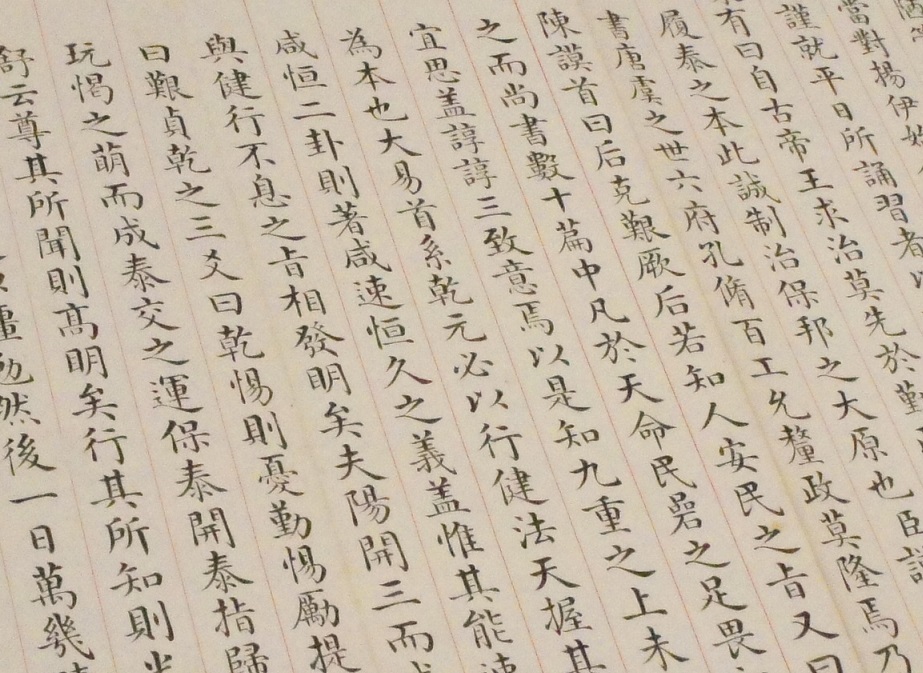 當對揚伊始
謹就平日所誦習者
有曰自古帝王求治莫先於勤
履泰之本此誠制治保邦之大原也臣謹
書唐虞之世六府孔脩百工允釐政莫隆焉乃
陳謨首曰后克艱厥后若知人安民之旨又曰
之而尚書數十篇中凡於天命民碞之足畏
宜思蓋諄諄三致意焉以是知九重之上未
為本也大易首系乾元必以行健法天握其
咸恒二卦則著咸速恒久之義蓋惟其能速
與健行不息之旨相發明矣夫陽開三而
曰艱貞乾之三爻曰乾惕則憂勤惕勵提
玩愒之萌而成泰交之運保泰開泰指歸
舒云尊其所聞則高明矣行其所知則光
勉然後一日萬幾